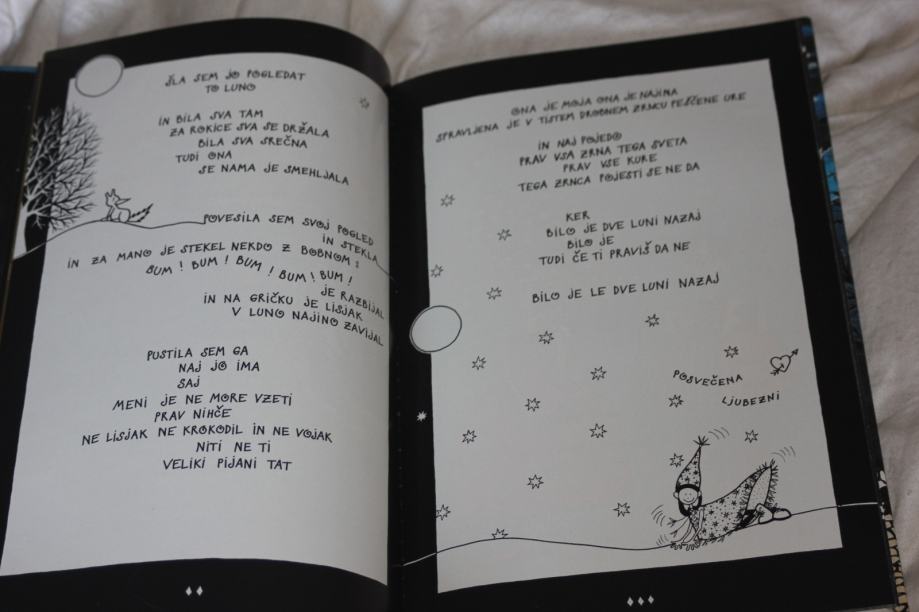 ŠLA SEM JO POGLEDAT
TO LUNO
IN BILA SVA TAM
ZA ROKICE SVA SE DRŽALA
BILA SVA SREČNA
TUDI ONA
SE NAMA JE SMEHLJALA
POVESILA SEM SVOJ POGLED
IN STEKLA
IN ZA MANO JE STEKEL NEKDO Z BOBNOM :
BUM ! BUM ! BUM ! BUM ! BUM !
JE RAZBIJAL
IN NA GRIČKU JE LISJAK
V LUNO NAJINO ZAVIJAL
PUSTILA SEM GA
NAJ JO IMA
SAJ
MENI JE NE MORE VZETI
PRAV NIHČE
NE LISJAK NE KROKODIL IN NE VOJAK
NITI NE TI
VELIKI PIJANI TAT
ONA JE MOJA ONA JE NAJINA
SPRAVLJENA JE V TISTEM DROBNEM ZRNCU PEŠČENE URE
IN NAJ POJEDO
PRAV VSA ZRNA TEGA SVETA
PRAV VSE KURE
TEGA ZRNCA POJESTI SE NE DA
KER
BILO JE DVE LUNI NAZAJ
BILO JE
TUDI ČE TI PRAVIŠ DA NE
BILO JE LE DVE LUNI NAZAJ
POSVEČENA
LJUBEZNI